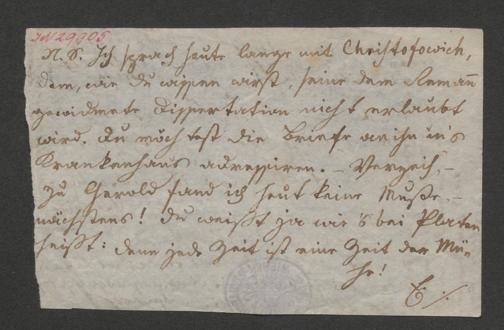 IN 29906
N. S. Ich sprach heute lange mit Christofowich,
dem, wie du wissen wirst, seine dem Roman
gewidmete Dissertation nicht erlaubt
wird. Du möchtest die Briefe an ihn in's
Krankenhaus adressiren. – Verzeih, –
zu Gerold fand ich heut keine Muße, –
nächstens! Du weißt ja wie's bei Platen
heißt: denn jede Zeit ist eine Zeit der Mü-
he!
E./.